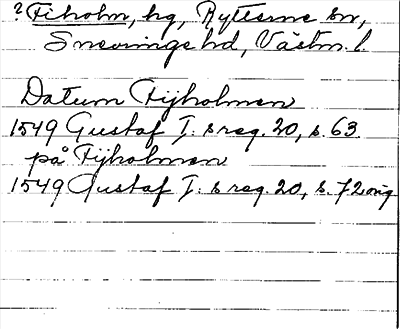 ? Fiholm, hg, Rytterne sn,
Snevringe hd, Västm. l.
Datum Fijholmen
1549 Gustaf I:s reg. 20, s. 63
på Fijholmen
1549 Gustaf I:s reg. 20, s. 72